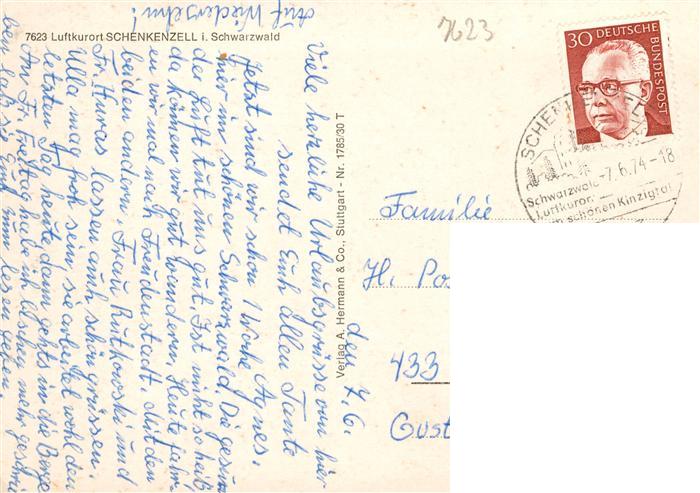 7623 Luftkurort SCHENKENZELL i. Schwarzwald
7623
30 DEUTSCHE BUNDESPOST
SCHENKENZELL
-7.6.74-18
Schwarzwald
Luftkurort
im schönen Kinzigtal
Verlag A. Hermann & Co., Stuttgart - Nr. 1785/30 T
den 7.6.
Viele herzliche Urlaubsgrüsse von hier
sendet Euch allen Tante
Agnes.
Jetzt sind wir schon 1 Woche
hier im schönen Schwarzwald. Die gesun
de Luft tut uns gut. Ist nicht so heiß
da können wir gut wandern. Heute fahr-
en wir mal nach Freudenstadt. Mit den
beiden andern, Frau Rutkowski und
Fr. lassen auch schön grüssen.
Ulla mag froh sein, sie arbeitet wohl den
letzten Tag heute dann gehts in die Berge
An Fr. Freitag habe ich schon mehr geschrie
ben laß sie Euch zum lesen geben.
Auf Wiedersehn!
Familie
H. Pos
433
Gust